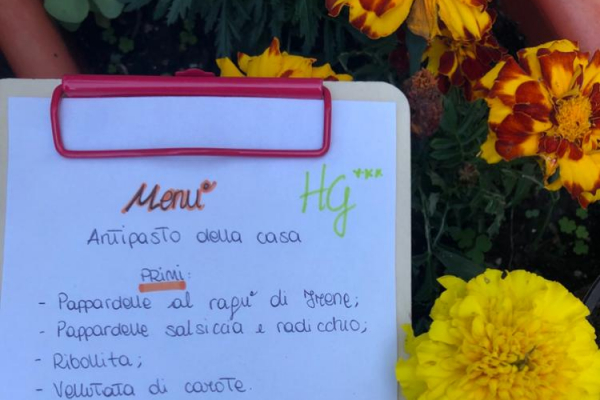 Menù
HG***
Antipasto della casa
PRIMI:
- Pappardelle al ragu° di Irene;
- Pappardelle salsiccia e radicchio;
- Ribollita;
- Vellutata di carote.